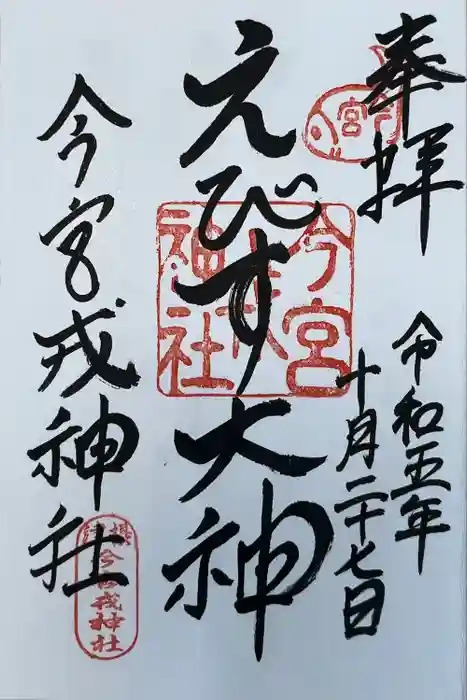 奉拝
令和五年
十月二十七日
えびす大神
今宮戎神社
今宮
今宮戎神社
摂津
今宮戎神社